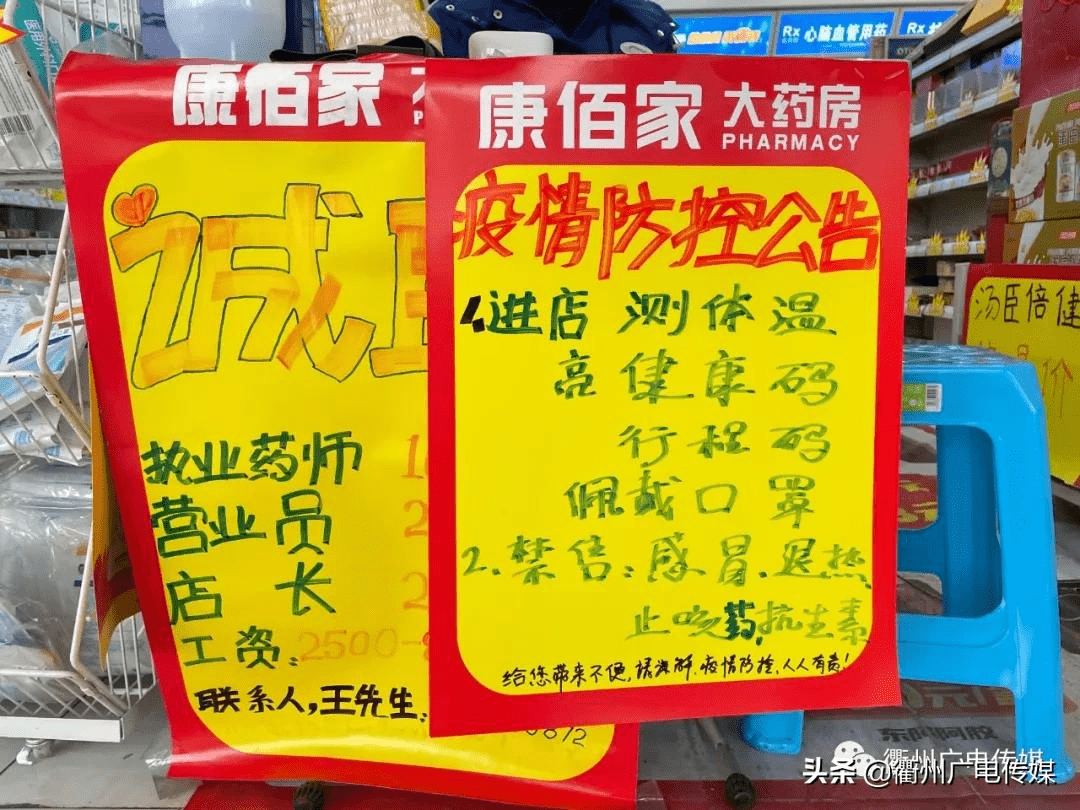 康佰家
诚
执业药师
营业员
店长
工资:2500-
联系人,王先生.
康佰家 大药房
PHARMACY
疫情防控公告
1.进店 测体温
亮健康码
行程码
佩戴口罩
2.禁售:感冒.退热.
止咳药,抗生素
给您带来不便,请谅解.疫情防控,人人有责!
Rx 心脑血管用药
Rx
汤臣倍健
东阿阿胶
衢州广电传媒
头条 @衢州广电传媒